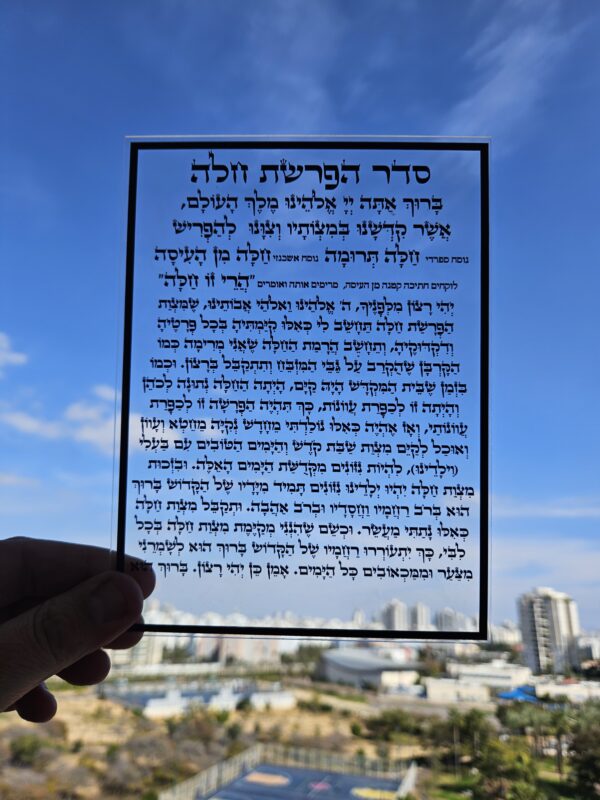 סדר הפרשת חלה
בָּרוּךְ אַתָּה יְיָ אֱלֹהֵינוּ מֶלֶךְ הָעוֹלָם,
אֲשֶׁר קִדְּשָׁנוּ בְּמִצְוֹתָיו וְצִוָּנוּ לְהַפְרִישׁ
נוסח ספרדי חַלָּה תְּרוּמָה נוסח אשכנזי חַלָּה מִן הָעִיסָה
לוקחים חתיכה קטנה מן העיסה, מרימים אותה ואומרים "הֲרֵי זוֹ חַלָּה"
יְהִי רָצוֹן מִלְּפָנֶיךָ, ה' אֱלֹהֵינוּ וֵאלֹהֵי אֲבוֹתֵינוּ, שֶׁמִּצְוַת
הַפְרָשַׁת חַלָּה תֵּחָשֵׁב לִי כְּאִלּוּ קִיַּמְתִּיהָ בְּכָל פְּרָטֶיהָ
וְדִקְדּוּקֶיהָ, וְתֵחָשֵׁב הֲרָמַת הַחַלָּה שֶׁאֲנִי מְרִימָה כְּמוֹ
הַקָּרְבָּן שֶׁהֻקְרַב עַל גַּבֵּי הַמִּזְבֵּחַ וְתִתְקַבֵּל בְּרָצוֹן. וּכְמוֹ
בִּזְמַן שֶׁבֵּית הַמִּקְדָּשׁ הָיָה קַיָּם, הָיְתָה הַחַלָּה נְתוּנָה לַכֹּהֵן
וְהָיְתָה זוֹ לְכַפָּרַת עֲוֹנוֹת, כָּךְ תִּהְיֶה הַפְרָשָׁה זוֹ לְכַפָּרַת
עֲוֹנוֹתַי, וְאָז אֶהְיֶה כְּאִלּוּ נוֹלַדְתִּי מֵחָדָשׁ נְקִיָּה מֵחֵטְא וְעָוֹן
וְאוּכַל לְקַיֵּם מִצְוַת שַׁבַּת קֹדֶשׁ וְהַיָּמִים הַטּוֹבִים עִם בַּעֲלִי
(וִילָדֵינוּ), לִהְיוֹת נִזּוֹנִים מִקְּדֻשַּׁת הַיָּמִים הָאֵלֶּה. וּבִזְכוּת
מִצְוַת חַלָּה יִהְיוּ יְלָדֵינוּ נִזּוֹנִים תָּמִיד מִיָּדָיו שֶׁל הַקָּדוֹשׁ בָּרוּךְ
הוּא בְּרֹב רַחֲמָיו וַחֲסָדָיו וּבְרֹב אַהֲבָה. וּתְקֻבַּל מִצְוַת חַלָּה
כְּאִלּוּ נָתַתִּי מַעֲשֵׂר. וּכְשֵׁם שֶׁהִנְנִי מְקַיֶּמֶת מִצְוַת חַלָּה בְּכָל
לִבִּי, כָּךְ יִתְעוֹרְרוּ רַחֲמָיו שֶׁל הַקָּדוֹשׁ בָּרוּךְ הוּא לְשָׁמְרֵנִי
מִצַּעַר וּמִמַּכְאוֹבִים כָּל הַיָּמִים. אָמֵן כֵּן יְהִי רָצוֹן. בָּרוּךְ הוּא